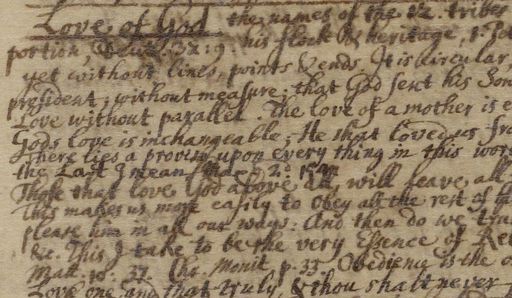 Love of God the names of the 12. tribes
portion, Deut. 32. 9. his flock & heritage, 1. Pet
yet without lines, points & ends. It is circular,
president; without measure; that God sent his Son
Love without parallel. The love of a mother is e
Gods love is unchangeable; He that loved us fro
There lies a proviso upon every thing in this wor
the Last I mean
Those that love God above all, will leave all
This makes us most easily to obey all the rest of
please him in all our ways: And then do we tru
&c. This I take to be the very Essence of Rel
Matt. 10. 37. Chr. Monit. p. 33. Obedience is the
Love one, and that truly, & thou shalt never